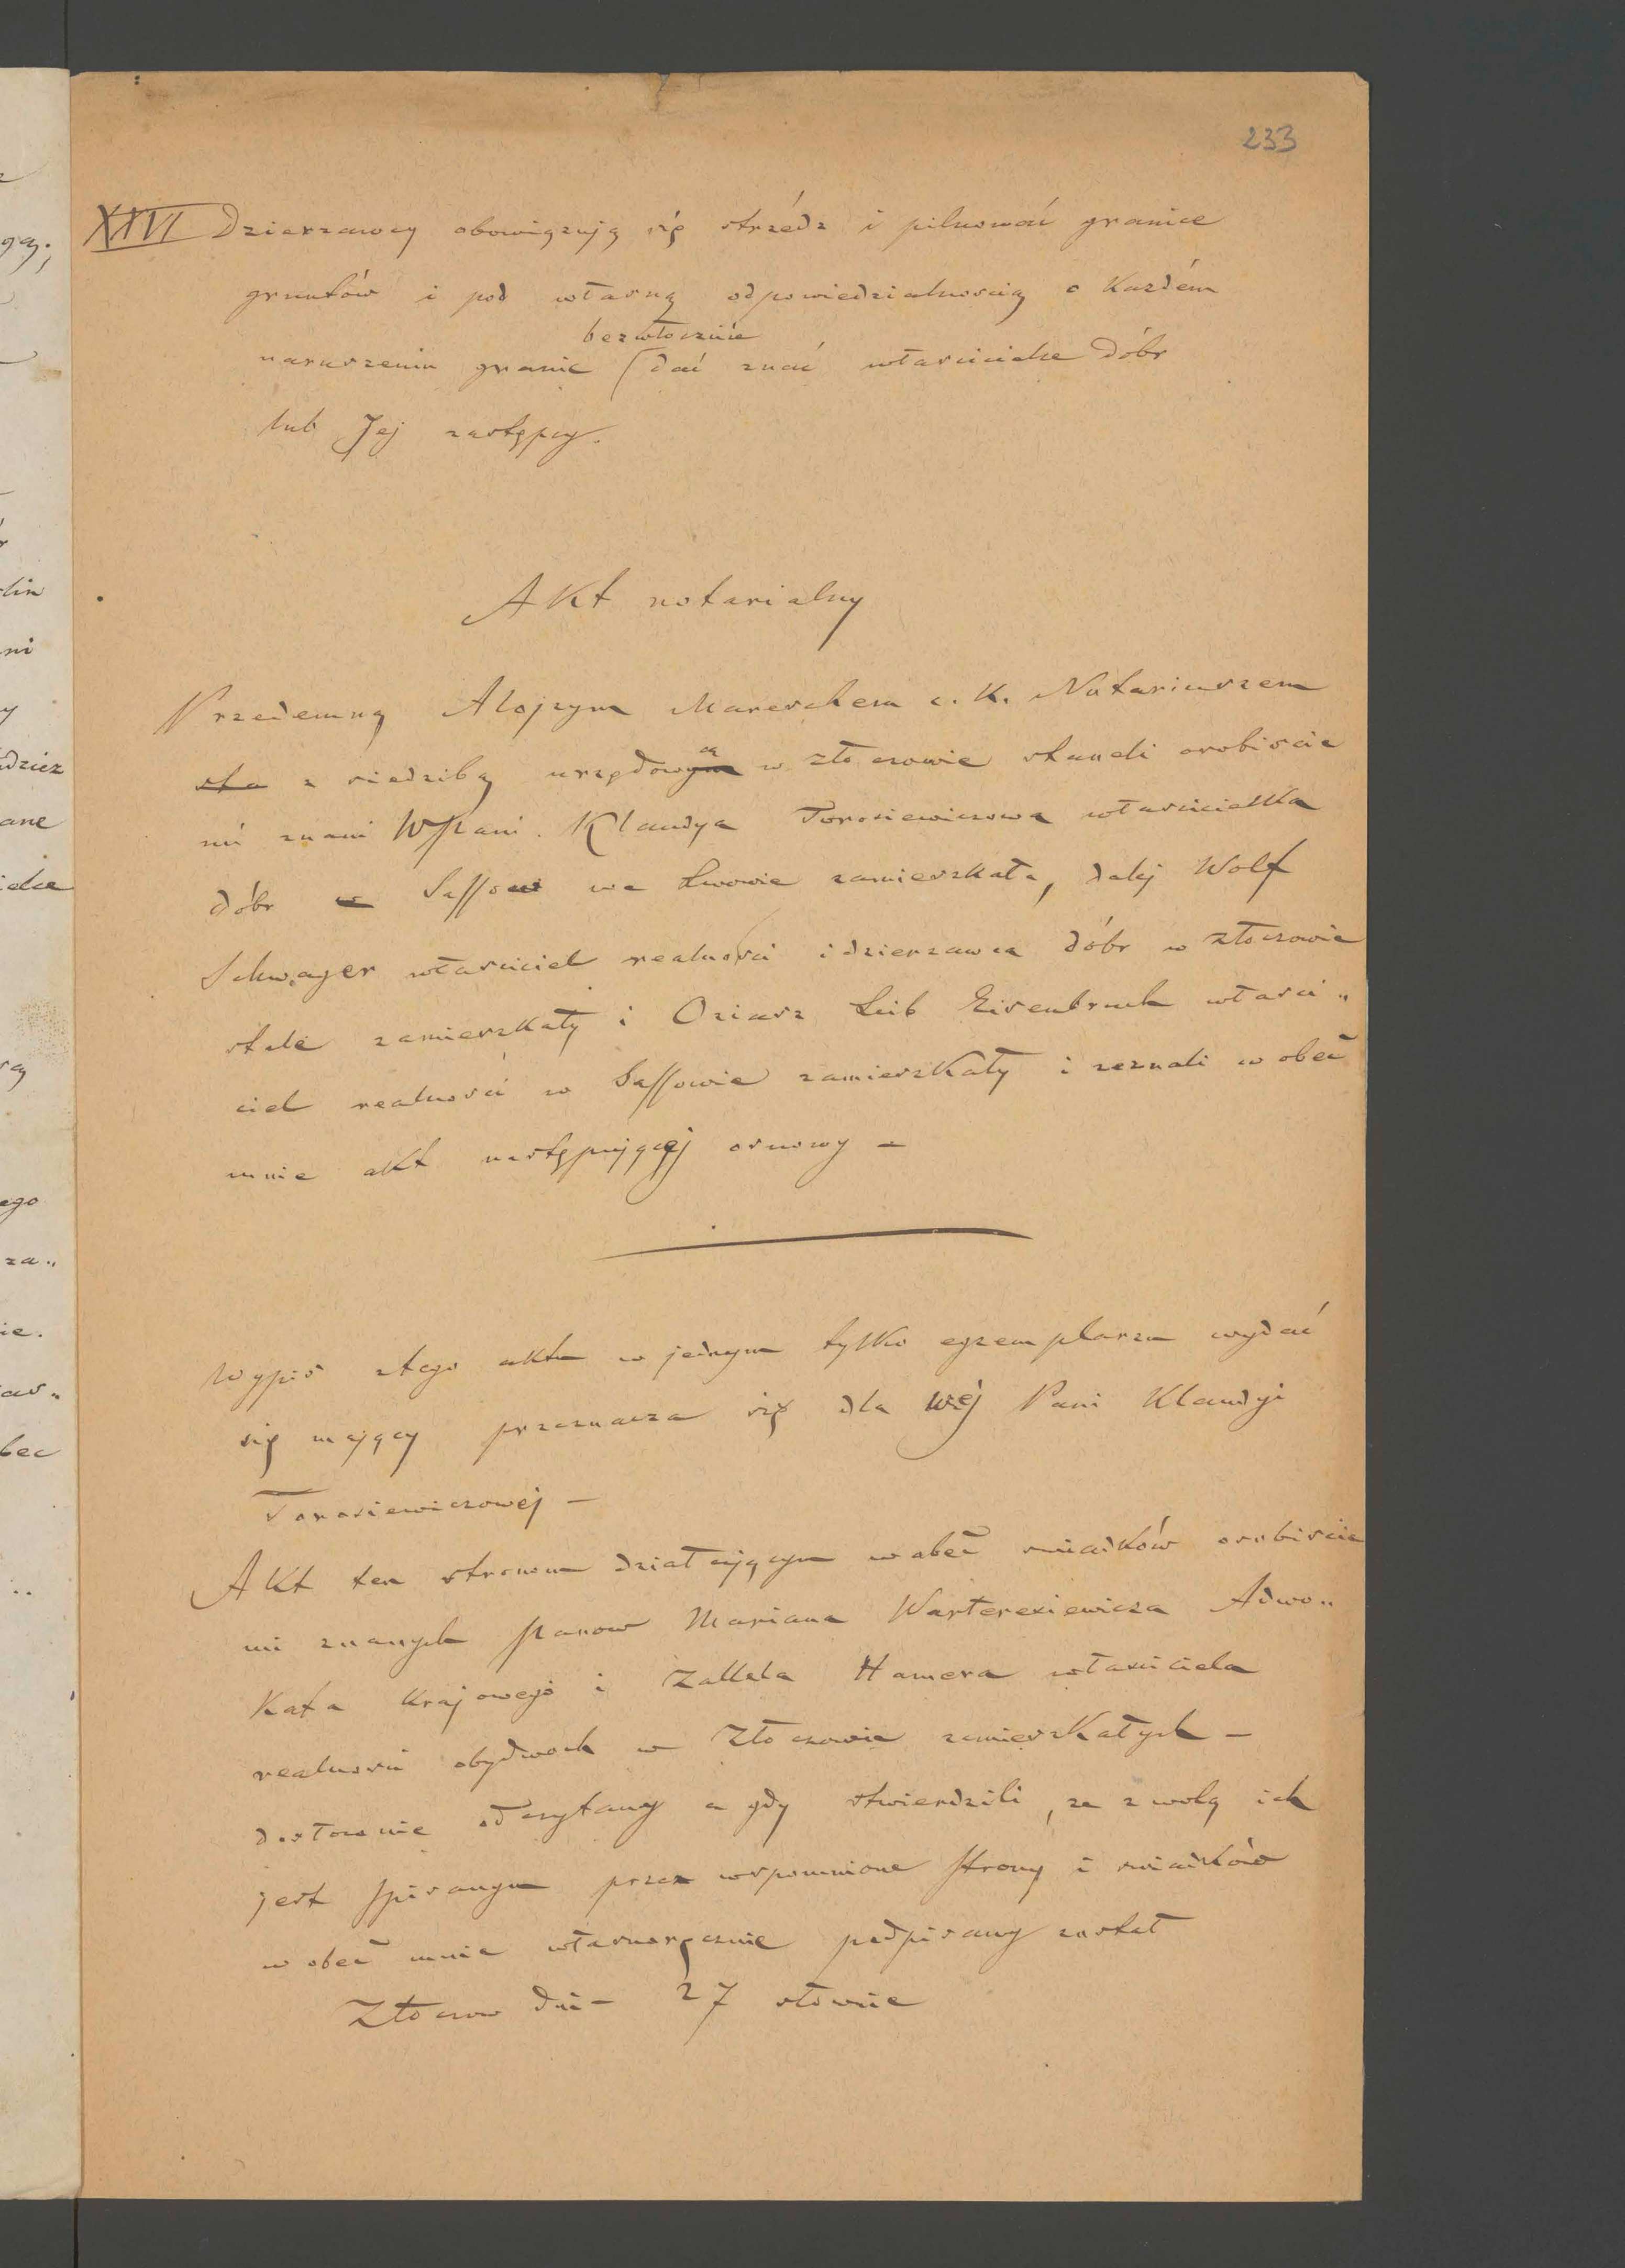 233
XXVI Dzierzawcy obowiązują się strzédz i pilnować granice
gruntów i pod własną odpowiedzialnoscią o Kazdém
bezwłocznie
naruszeniu granic dać znać właścicielce dóbr
lub Jej zastępcy.
AKt notarialny
Przedemną Alojzym Mareschem c. K. Notariuszem
sta z siedzibą urzędowym ą w Złoczowie stanęli osobiscie
mi znani WPani. Klaudya Torosiewiczowa własicielka
dóbr w Sassow we Lwowie zamieszkała, dalej Wolf
Schwager własciciel realności i dzierzawca dóbr w Złoczowie
stale zamieszkały i Oziasz Leib Eisenbruch własci„
ciel realnosci w Sassowie zamieszKały i zeznali w obec
mnie akt następującej osnowy –
Wypis z tego aktu w jednym tylko egzemplarzu wydać
się mający przeznacza się dla Wej Pani Klaudyi
Torosiewiczowej –
AKt ten stronom działającym w obec swiadków osobiscie
mi znanych Panow Mariana Warteresiewicza Adwo„
Kata Krajowego i Hamera własciciela
realnosci obydwoch w Złoczowie zamieszKałych –
dosłownie odczytany a gdy stwierdzili, ze z wolą ich
jest spisanym przez wspomnione strony i swiadków
w obec mnie własnoręcznie podpisany został
Złoczow dni– 27 słownie
ą.
lin
ni
y
dziez
ane
ego
za„
ie.
bec